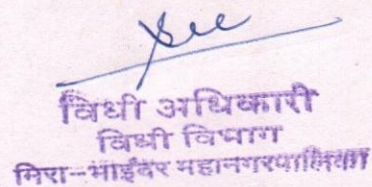 विधी अधिकारी
विधी विभाग
मिरा-भाईंदर महानगरपालिका